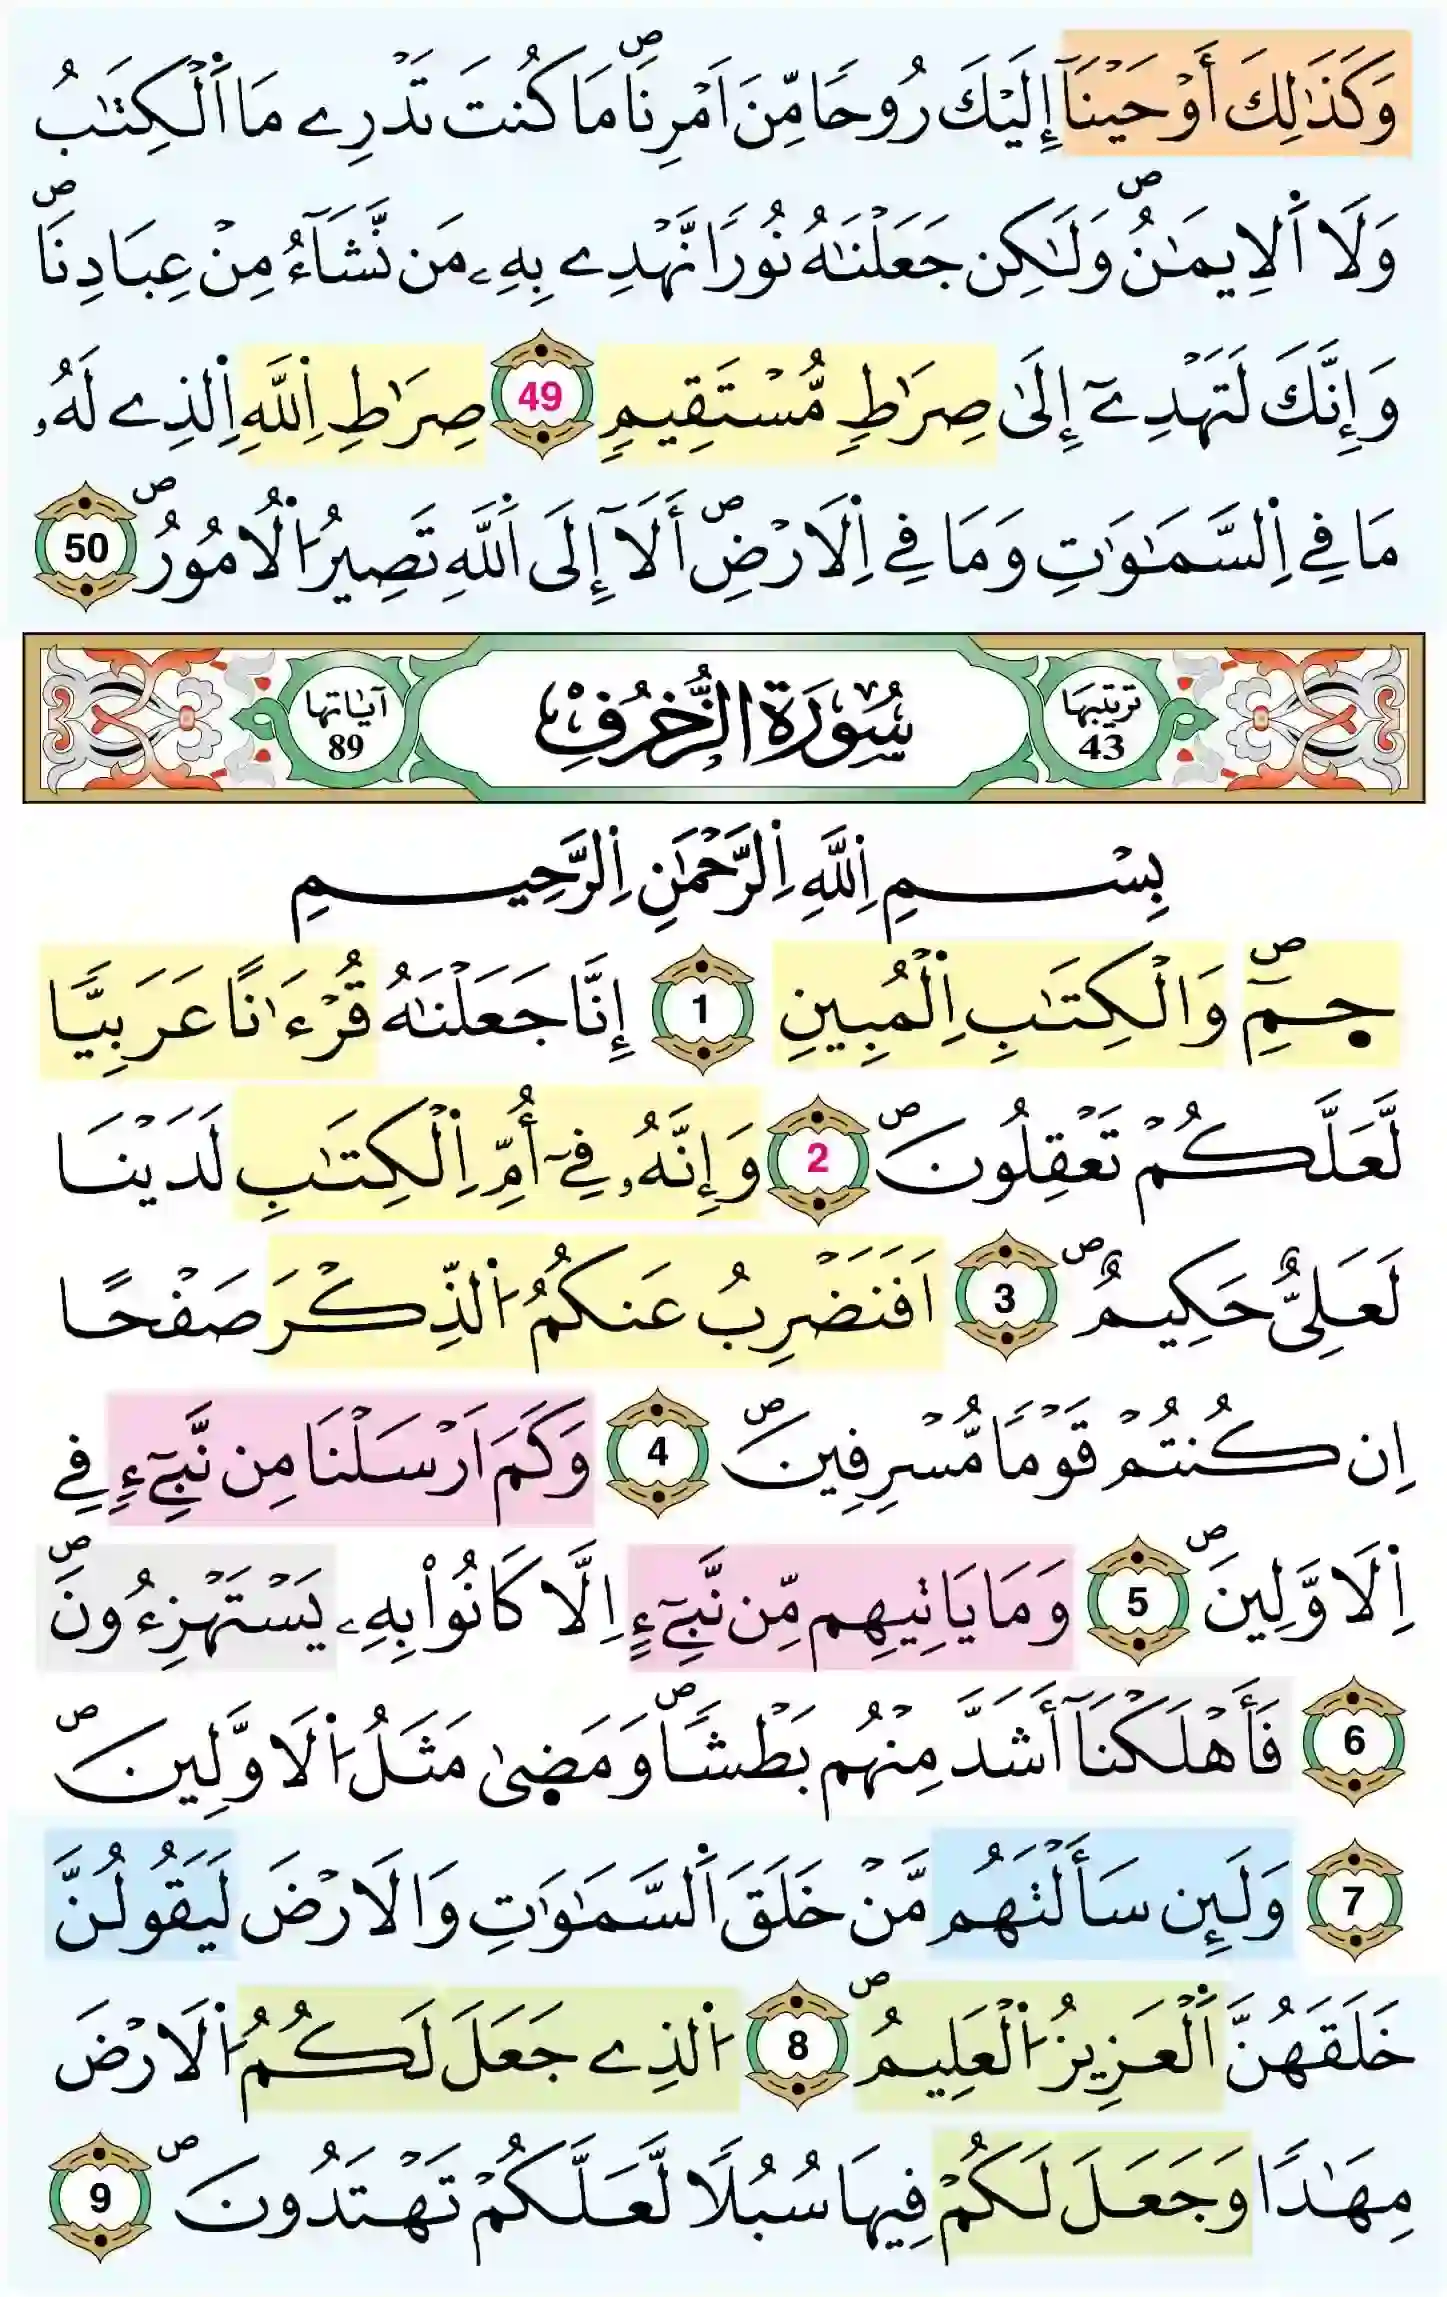 وَكَذَٰلِكَ أَوْحَيْنَآ إِلَيْكَ رُوحًا مِّنَ اَمْرِنَاۖ مَا كُنتَ تَدْرِے مَا اَ۬لْكِتَٰبُ
وَلَا اَ۬لِايمَٰنُۖ وَلَٰكِن جَعَلْنَٰهُ نُورًا نَّهْدِے بِهِۦ مَن نَّشَآءُ مِنْ عِبَادِنَاۖ
وَإِنَّكَ لَتَهْدِےٓ إِلَىٰ صِرَٰطٖ مُّسْتَقِيمٖ 49 صِرَٰطِ اِ۬للَّهِ اِ۬لذِے لَهُۥ
مَا فِے اِ۬لسَّمَٰوَٰتِ وَمَا فِے اِ۬لَارْضِۖ أَلَآ إِلَى اَ۬للَّهِ تَصِيرُ اُ۬لُامُورُۖ 50
ترتيبها 43 سُورَةُ الزُّخْرُفِ آياتها 89
بِسْمِ اِ۬للَّهِ اِ۬لرَّحْمَٰنِ اِ۬لرَّحِيمِ
حٜمِٓۖ وَالْكِتَٰبِ اِ۬لْمُبِينِ 1 إِنَّا جَعَلْنَٰهُ قُرْءَٰناً عَرَبِيّاٗ
لَّعَلَّكُمْ تَعْقِلُونَۖ 2 وَإِنَّهُۥ فِےٓ أُمِّ اِ۬لْكِتَٰبِ لَدَيْنَا
لَعَلِيٌّ حَكِيمٌۖ 3 اَفَنَضْرِبُ عَنكُمُ اُ۬لذِّكْرَ صَفْحاً
اِن كُنتُمْ قَوْماٗ مُّسْرِفِينَۖ 4 وَكَمَ اَرْسَلْنَا مِن نَّبِےٓءٖ فِے
اِ۬لَاوَّلِينَۖ 5 وَمَا يَاتِيهِم مِّن نَّبِےٓءٍ اِلَّا كَانُواْ بِهِۦ يَسْتَهْزِءُونَۖ
6 فَأَهْلَكْنَآ أَشَدَّ مِنْهُم بَطْشاٗۖ وَمَضٜىٰ مَثَلُ اُ۬لَاوَّلِينَۖ
7 وَلَئِن سَأَلْتَهُم مَّنْ خَلَقَ اَ۬لسَّمَٰوَٰتِ وَالَارْضَ لَيَقُولُنَّ
خَلَقَهُنَّ اَ۬لْعَزِيزُ اُ۬لْعَلِيمُۖ 8 اُ۬لذِے جَعَلَ لَكُمُ اُ۬لَارْضَ
مِهَٰداٗ وَجَعَلَ لَكُمْ فِيهَا سُبُلاٗ لَّعَلَّكُمْ تَهْتَدُونَۖ 9